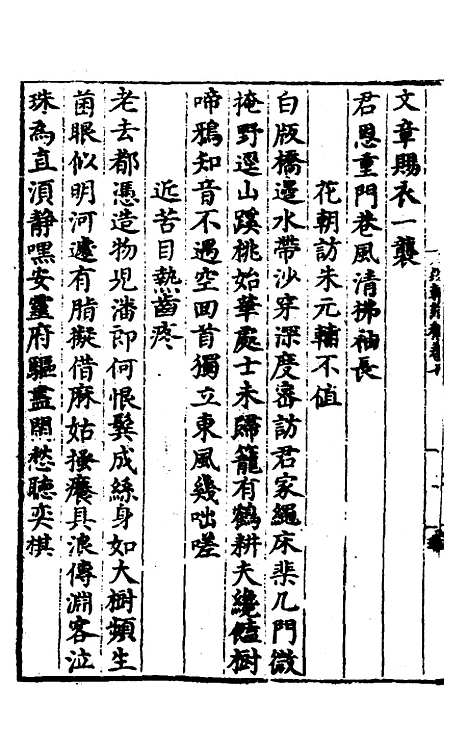 文章賜衣一襲
君恩重門巷風清拂袖長
花朝訪朱元輔不值
白版橋邊水帶沙穿深度密訪君家繩床棐几門微
掩野逕山蹊桃始華處士未歸籠有鶴耕夫繞饁樹
啼鴉知音不遇空回首獨立東風幾咄嗟
近苦目熱齒疼
老去都憑造物兒潘郎何恨鬢成絲身如大樹頻生
菌眼似明河遽有脂擬借麻姑搔癢具浪傳淵客泣
珠為直須靜嘿安靈府驅盡閒愁聽奕棋